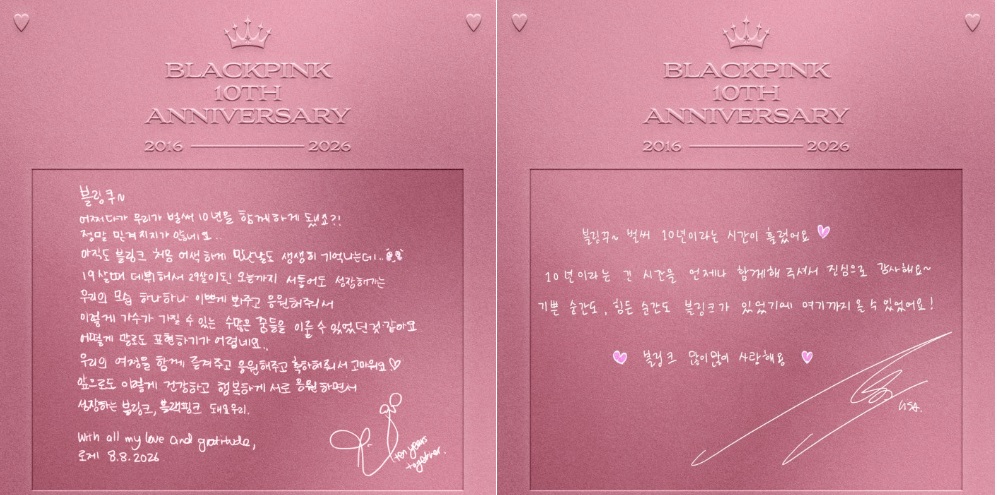 BLACKPINK
10TH
ANNIVERSARY
2016 2026
블링쿠~
어쩌다가 우리가 벌써 10년을 함께하게 됐죠?!
정말 믿겨지지가 않네요..
아직도 블링크 처음 어색하게 만난날도 생생히 기억나는데..
19살때 데뷔해서 29살이된 오늘까지 서툴어도 성장해가는
우리의 모습 하나하나 이쁘게 봐주고 응원해줘서
이렇게 가수가 가질 수 있는 수많은 꿈들을 이룰 수 있었던것 같아요
어떻게 말로도 표현하기가 어렵네요..
우리의 여정을 함께 즐겨주고 응원해주고 축하해줘서 고마워요♡
앞으로도 이렇게 건강하고 행복하게 서로 응원하면서
성장하는 블링크, 블랙핑크 돼요 우리.
With all my love and gratitude,
로제 8.8.2026
ten years
together.
BLACKPINK
10TH
ANNIVERSARY
2016 2026
블링꾸~ 벌써 10년이라는 시간이 흘렀어요
10년이라는 긴 시간을 언제나 함께해 주셔서 진심으로 감사해요~
기쁜 순간도, 힘든 순간도 블링크가 있었기에 여기까지 올 수 있었어요!
블링크 많이많이 사랑해용
LISA.